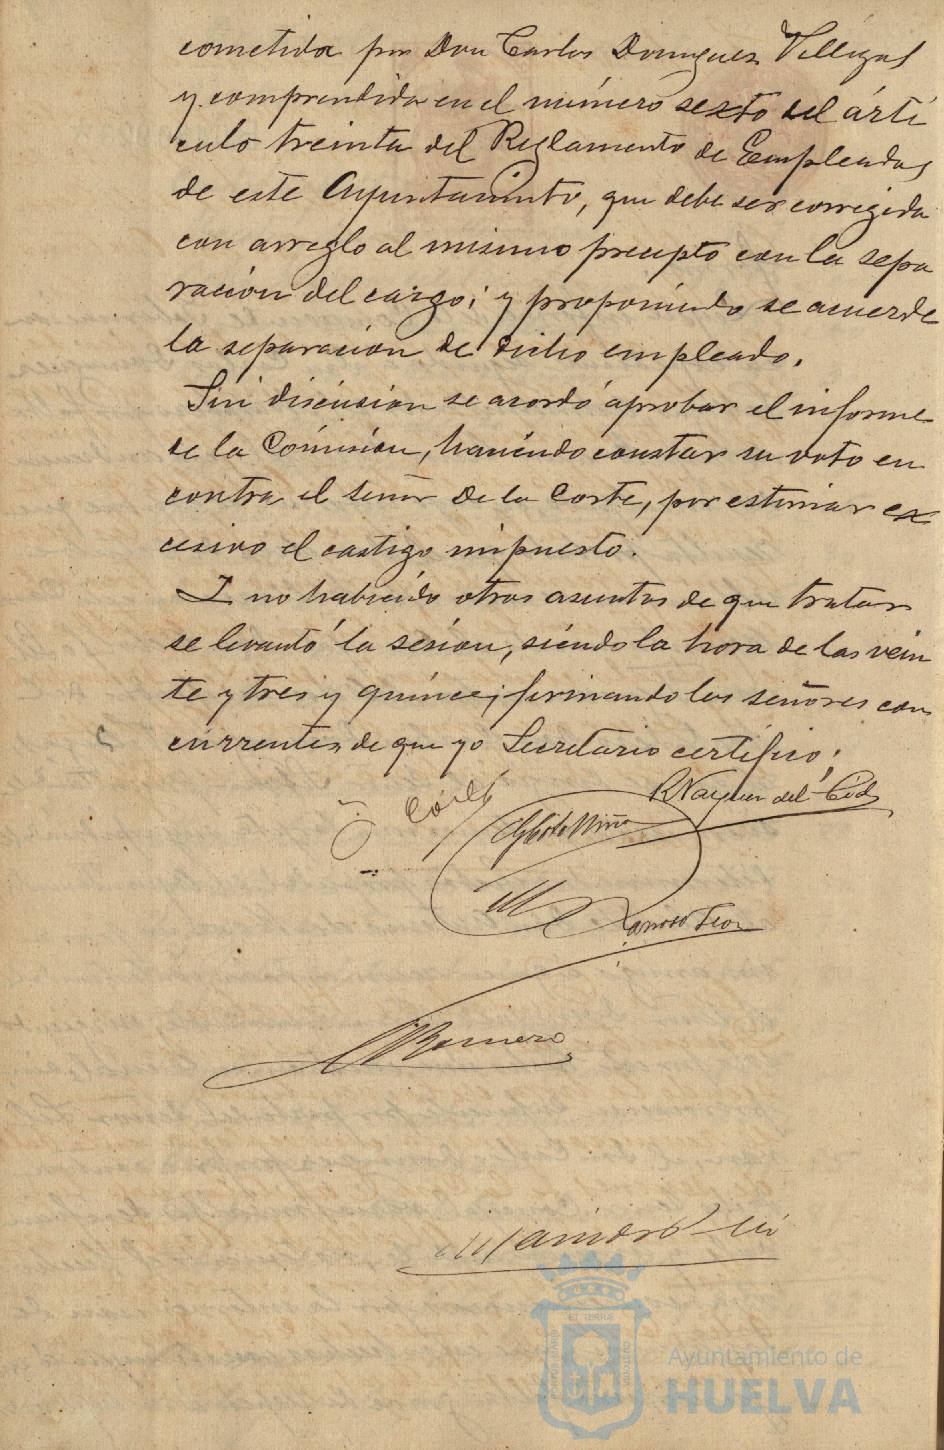 cometida por Don Carlos Dominguez Villegas
y comprendida en el número sexto del árti
culo treinta del Reglamento de Empleados
de este Ayuntamiento, que debe ser corregida
con arreglo al mismo precepto con la sepa
ración del cargo; y proponiendo se acuerde
la separación de dicho empleado.
Sin discusión se acordó aprobar el informe
de la Comisión, haciendo constar su voto en
contra el señor de la Corte, por estimar ex
cesivo el castigo impuesto.
I no habiendo otros asuntos de que tratar
se levantó la sesión, siendo la hora de las vein
te y tres y quince; firmando los señores con
currentes de que yo Secretario certifico;
R Vazquez del Cid
M
Romero
Ayuntamiento de
HUELVA